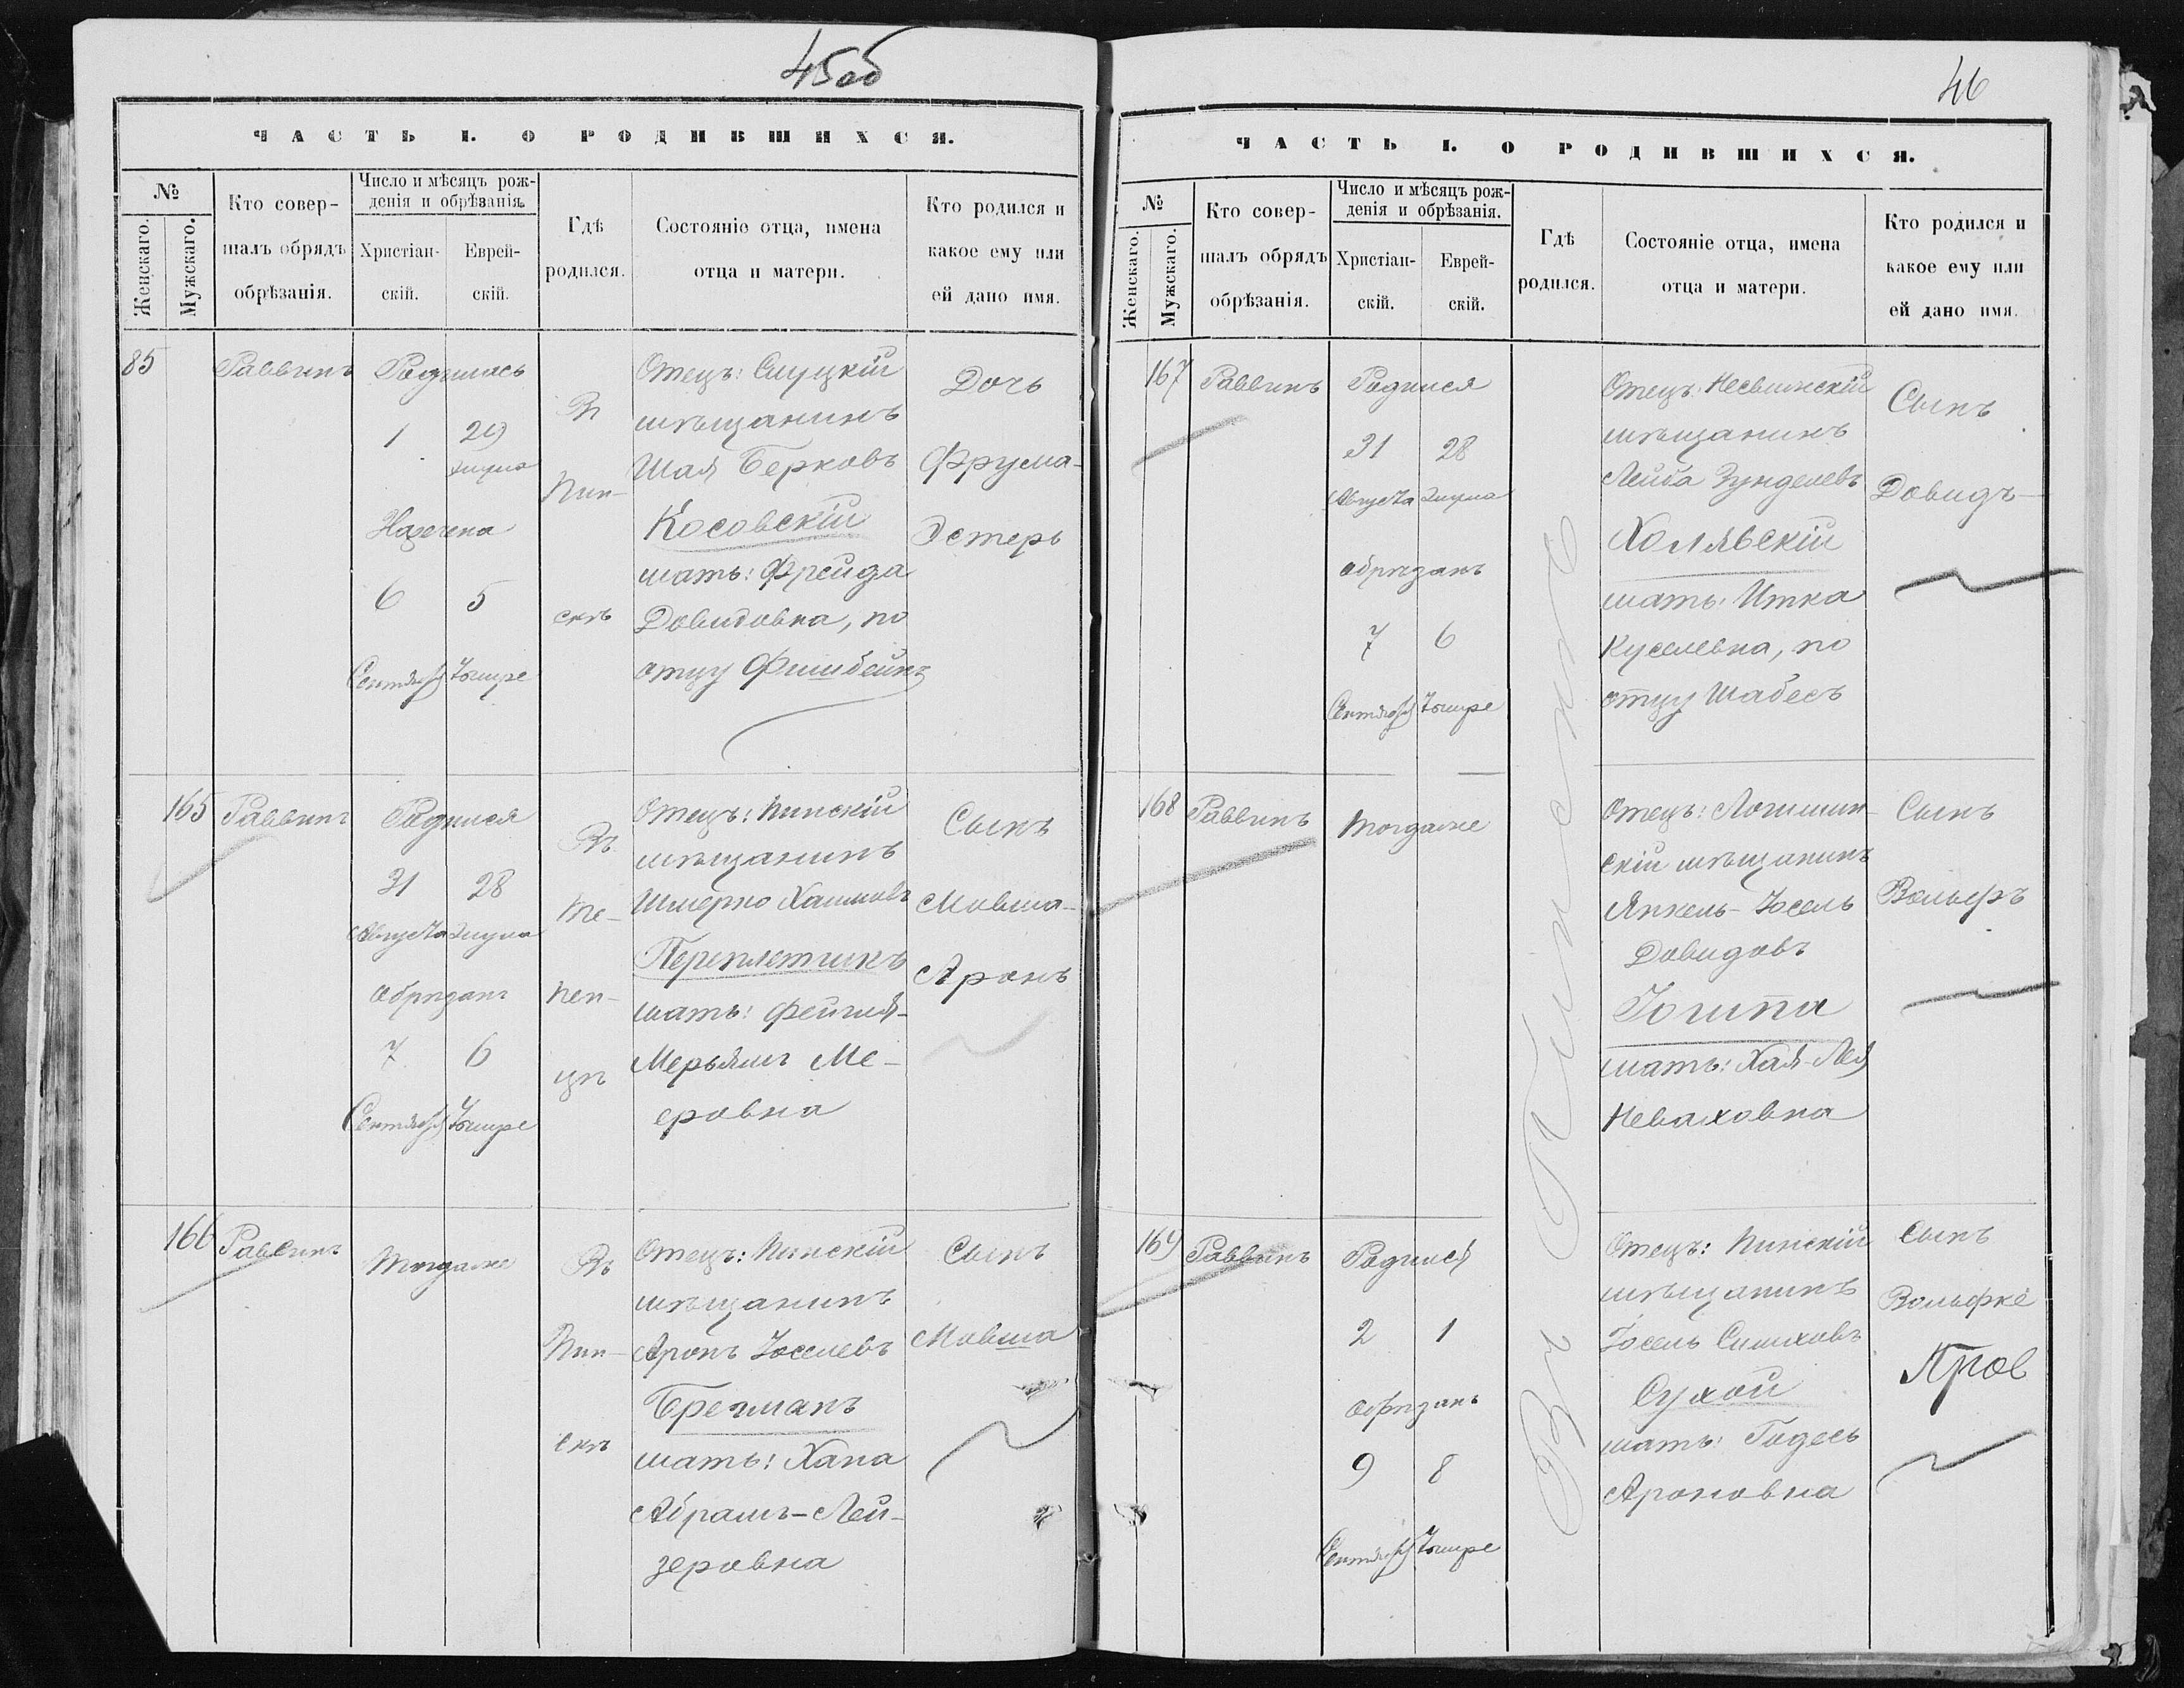 45об
ЧАСТЬ I. О РОДИВШИХСЯ.
№
Женскаго.
Мужскаго.
Кто совер-
шалъ обрядъ
обрѣзанія.
Число и мѣсяцъ рож-
денія и обрѣзанія.
Христіан-
скій.
Еврей-
скій.
Гдѣ
родился.
Состояніе отца, имена
отца и матери.
Кто родился и
какое ему или
ей дано имя.
85
Раввинъ
Родилась
1 29
Элула
Наречена
6 5
Сентября Тишре
Въ
Пин-
скѣ
Отецъ: Слуцкій
мѣщанинъ
Шая Берковъ
Косовскій
мать: Фрейда
Довидовна, по
отцу Фишбейнъ
Дочь
Фрума-
Эстеръ
165
Раввинъ
Родился
31 28
Августа Элула
Обрѣзанъ
7 6
Сентября Тишре
Въ
Те-
пен-
цѣ
Отецъ: Пинскій
мѣщанинъ
Шмерко Хаимовъ
Переплетчикъ
мать: Фейгля-
Мерьямъ Ме-
еровна
Сынъ
Мовша-
Аронъ
166
Раввинъ
Тогдаже
Въ
Пин-
скѣ
Отецъ: Пинскій
мѣщанинъ
Аронъ Іоселевъ
Брегманъ
мать: Хана
Абрамъ-Лей-
зеровна
Сынъ
Мовша
46
ЧАСТЬ I. О РОДИВШИХСЯ.
№
Женскаго.
Мужскаго.
Кто совер-
шалъ обрядъ
обрѣзанія.
Число и мѣсяцъ рож-
денія и обрѣзанія.
Христіан-
скій.
Еврей-
скій.
Гдѣ
родился.
Состояніе отца, имена
отца и матери.
Кто родился и
какое ему или
ей дано имя.
167
Раввинъ
Родился
31 28
Августа Элула
Обрѣзанъ
7 6
Сентября Тишре
Въ Пинскѣ
Отецъ: Несвижскій
мѣщанинъ
Лейба Зунделевъ
Холявскій
мать: Итка
Куселевна, по
отцу Шабесъ
Сынъ
Довидъ
168
Раввинъ
Тогдаже
Отецъ: Логишин-
скій мѣщанинъ
Янкель-Іосель
Довидовъ
мать: Хая-Лея
Неваховна
Сынъ
Вольфъ
169
Раввинъ
Родился
2 1
Обрѣзанъ
9 8
Сентября Тишре
Отецъ: Пинскій
мѣщанинъ
Іосель Симховъ
Сухой
мать: Годесь
Ароновна
Сынъ
Вольфке